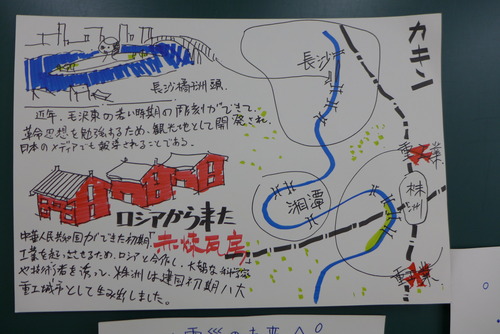 カキン
長沙
長沙橘子洲頭.
近年、毛沢東の若い時期の彫刻ができて、
革命思想を勉強するため、観光地として開発され、
日本のメディアでも報導されることである.
重業
株洲
湘潭
ロシアから来た
赤煉瓦房
中華人民共和国ができた初期、
工業を起こせるため、ロシアと合作し、大勢な科学家
や技術者を誘って、株洲は建国初期八大
重工城市として生み出しました。
重業